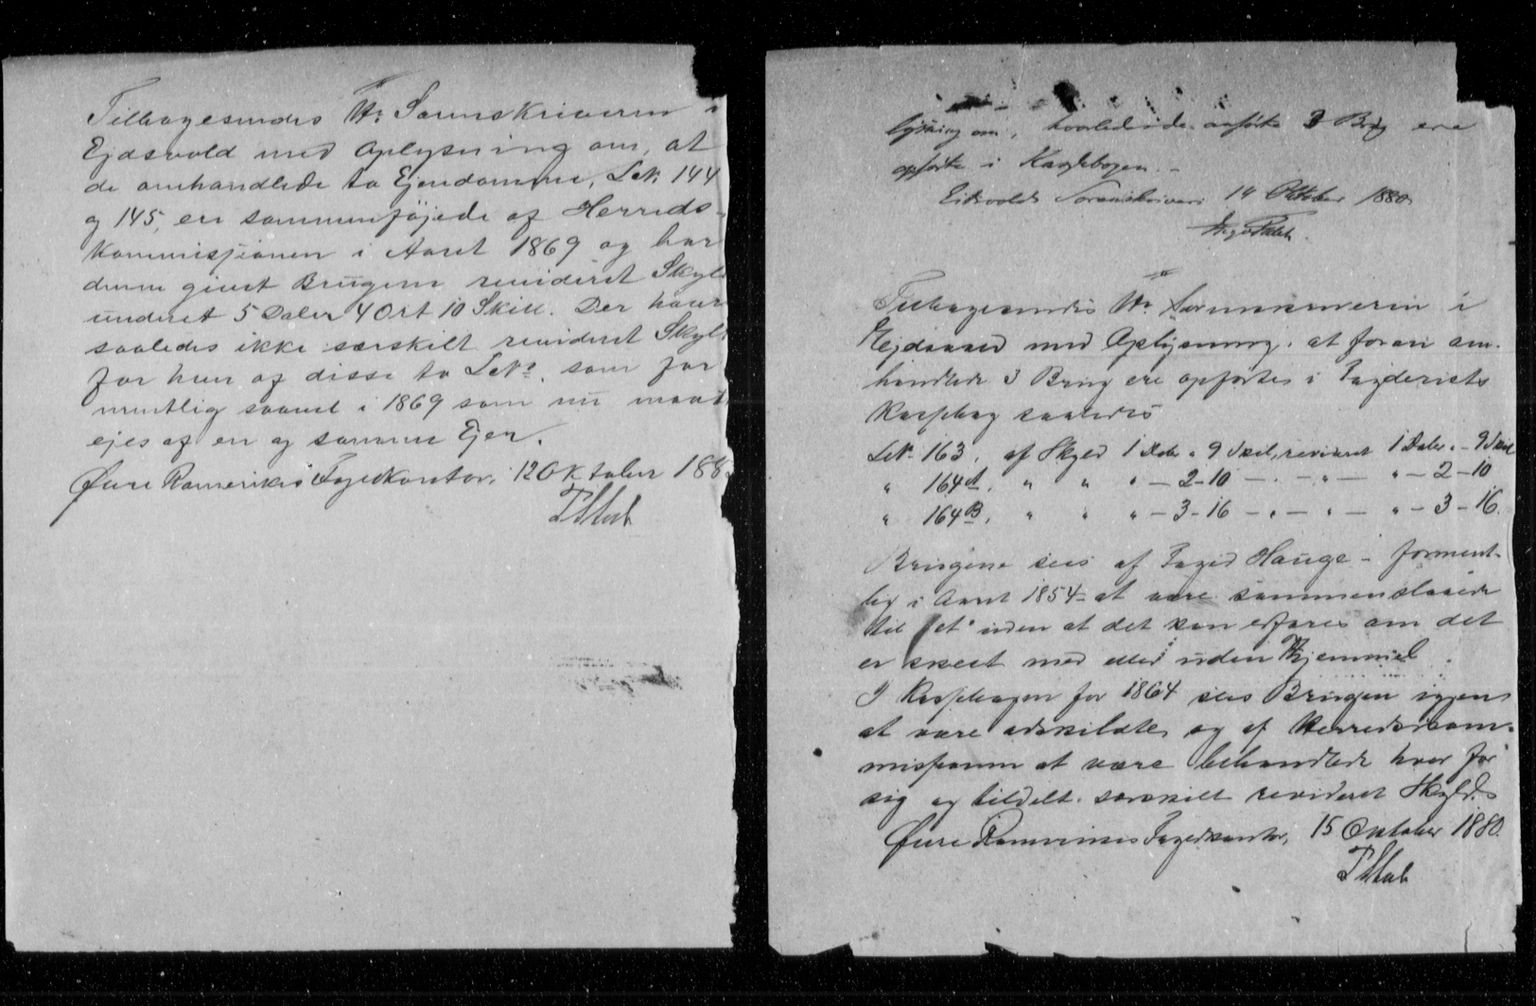 Tilbagesendes Hr. Sorenskriveren i
Ejdsvold med Oplysning om, at
de omhandlede to Ejendomme, L.N. 144
og 145, ere sammenføjede af Herreds-
kommissionen i Aaret 1869 og har
denne givet Brugene revideret Skyld
underet 5 Daler 4 Ort 10 Skill. Der haves
saaledes ikke særskilt revideret Skyld
for hver af disse to L.No. som for
mentlig saavel i 1869 som nu maatte
ejes af en og samme Ejer.
Øvre Romerikes Fogedkontor, 12 Oktober 188
T. Stub
lysning om, hvorledes de anførte 3 Brug ere
opførte i Matrikelbogen.
Eidsvolds Sorenskriveri 14 Oktober 1880
Tilbagesendes Hr. Sorenskriveren i
Ejdsvold med Oplysning, at foran om-
handlede 3 Brug ere opførte i Fogderiets
Kassebog saaledes
L.N. 163, af Skyld 1 Daler " 9 Skil, revideret 1 Daler " - 9 Skil
" 164 A, " " " - 2 - 10 - " - " - " - 2 - 10
" 164 B, " " " - 3 - 16 - " - " - " - 3 - 16.
Brugene sees af Foged Hauge - forment-
lig i Aaret 1854 - at være sammenslaaede
til et uden at det kan erfares om det
er skeet med eller uden Hjemmel.
I Kassebogen for 1864 sees Brugene igjen
at være adskildte og af Herredskom-
missionen at være behandlede hver for
sig og tildelt særskilt revideret Skyld.
Øvre Romerikes Fogedkontor, 15 Oktober 1880.
T. Stub